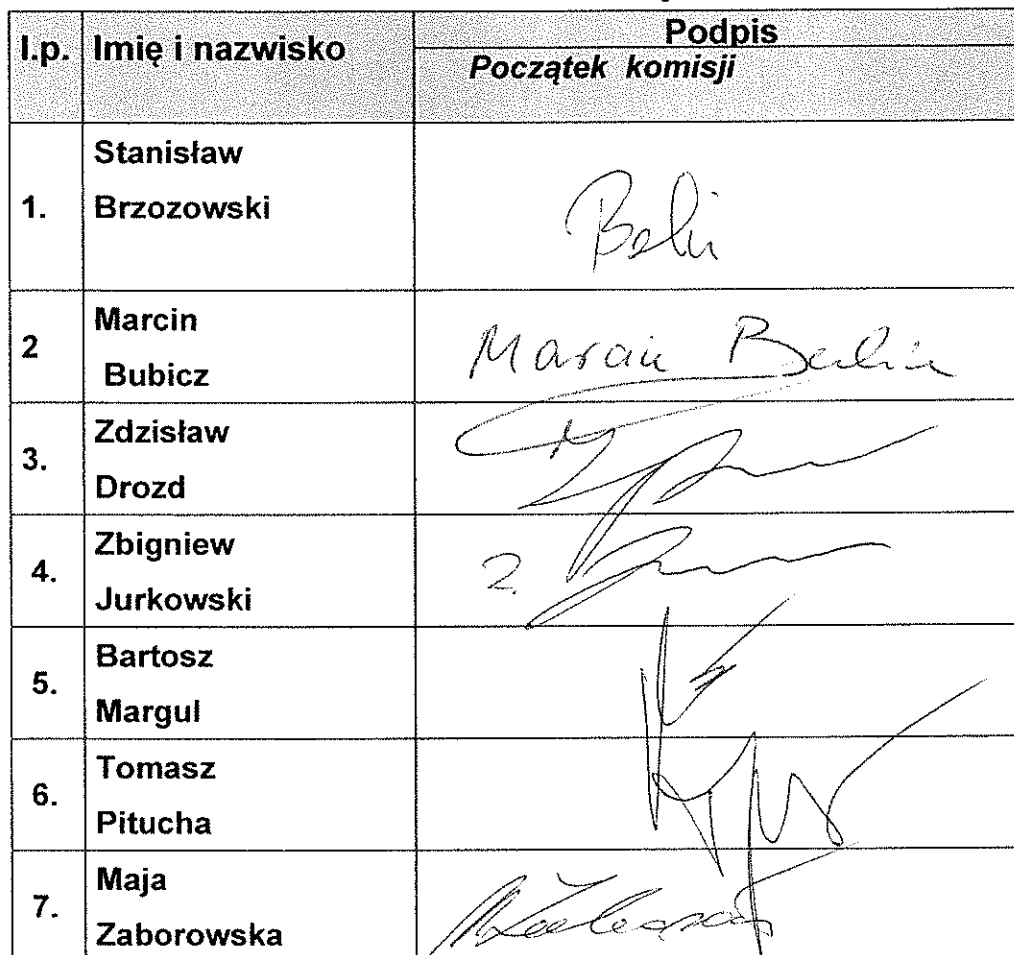 l.p. Imię i nazwisko Podpis
Początek komisji
1. Stanisław
Brzozowski
2 Marcin
Bubicz
Marcin
3. Zdzisław
Drozd
4. Zbigniew
Jurkowski
Z.
5. Bartosz
Margul
6. Tomasz
Pitucha
7. Maja
Zaborowska